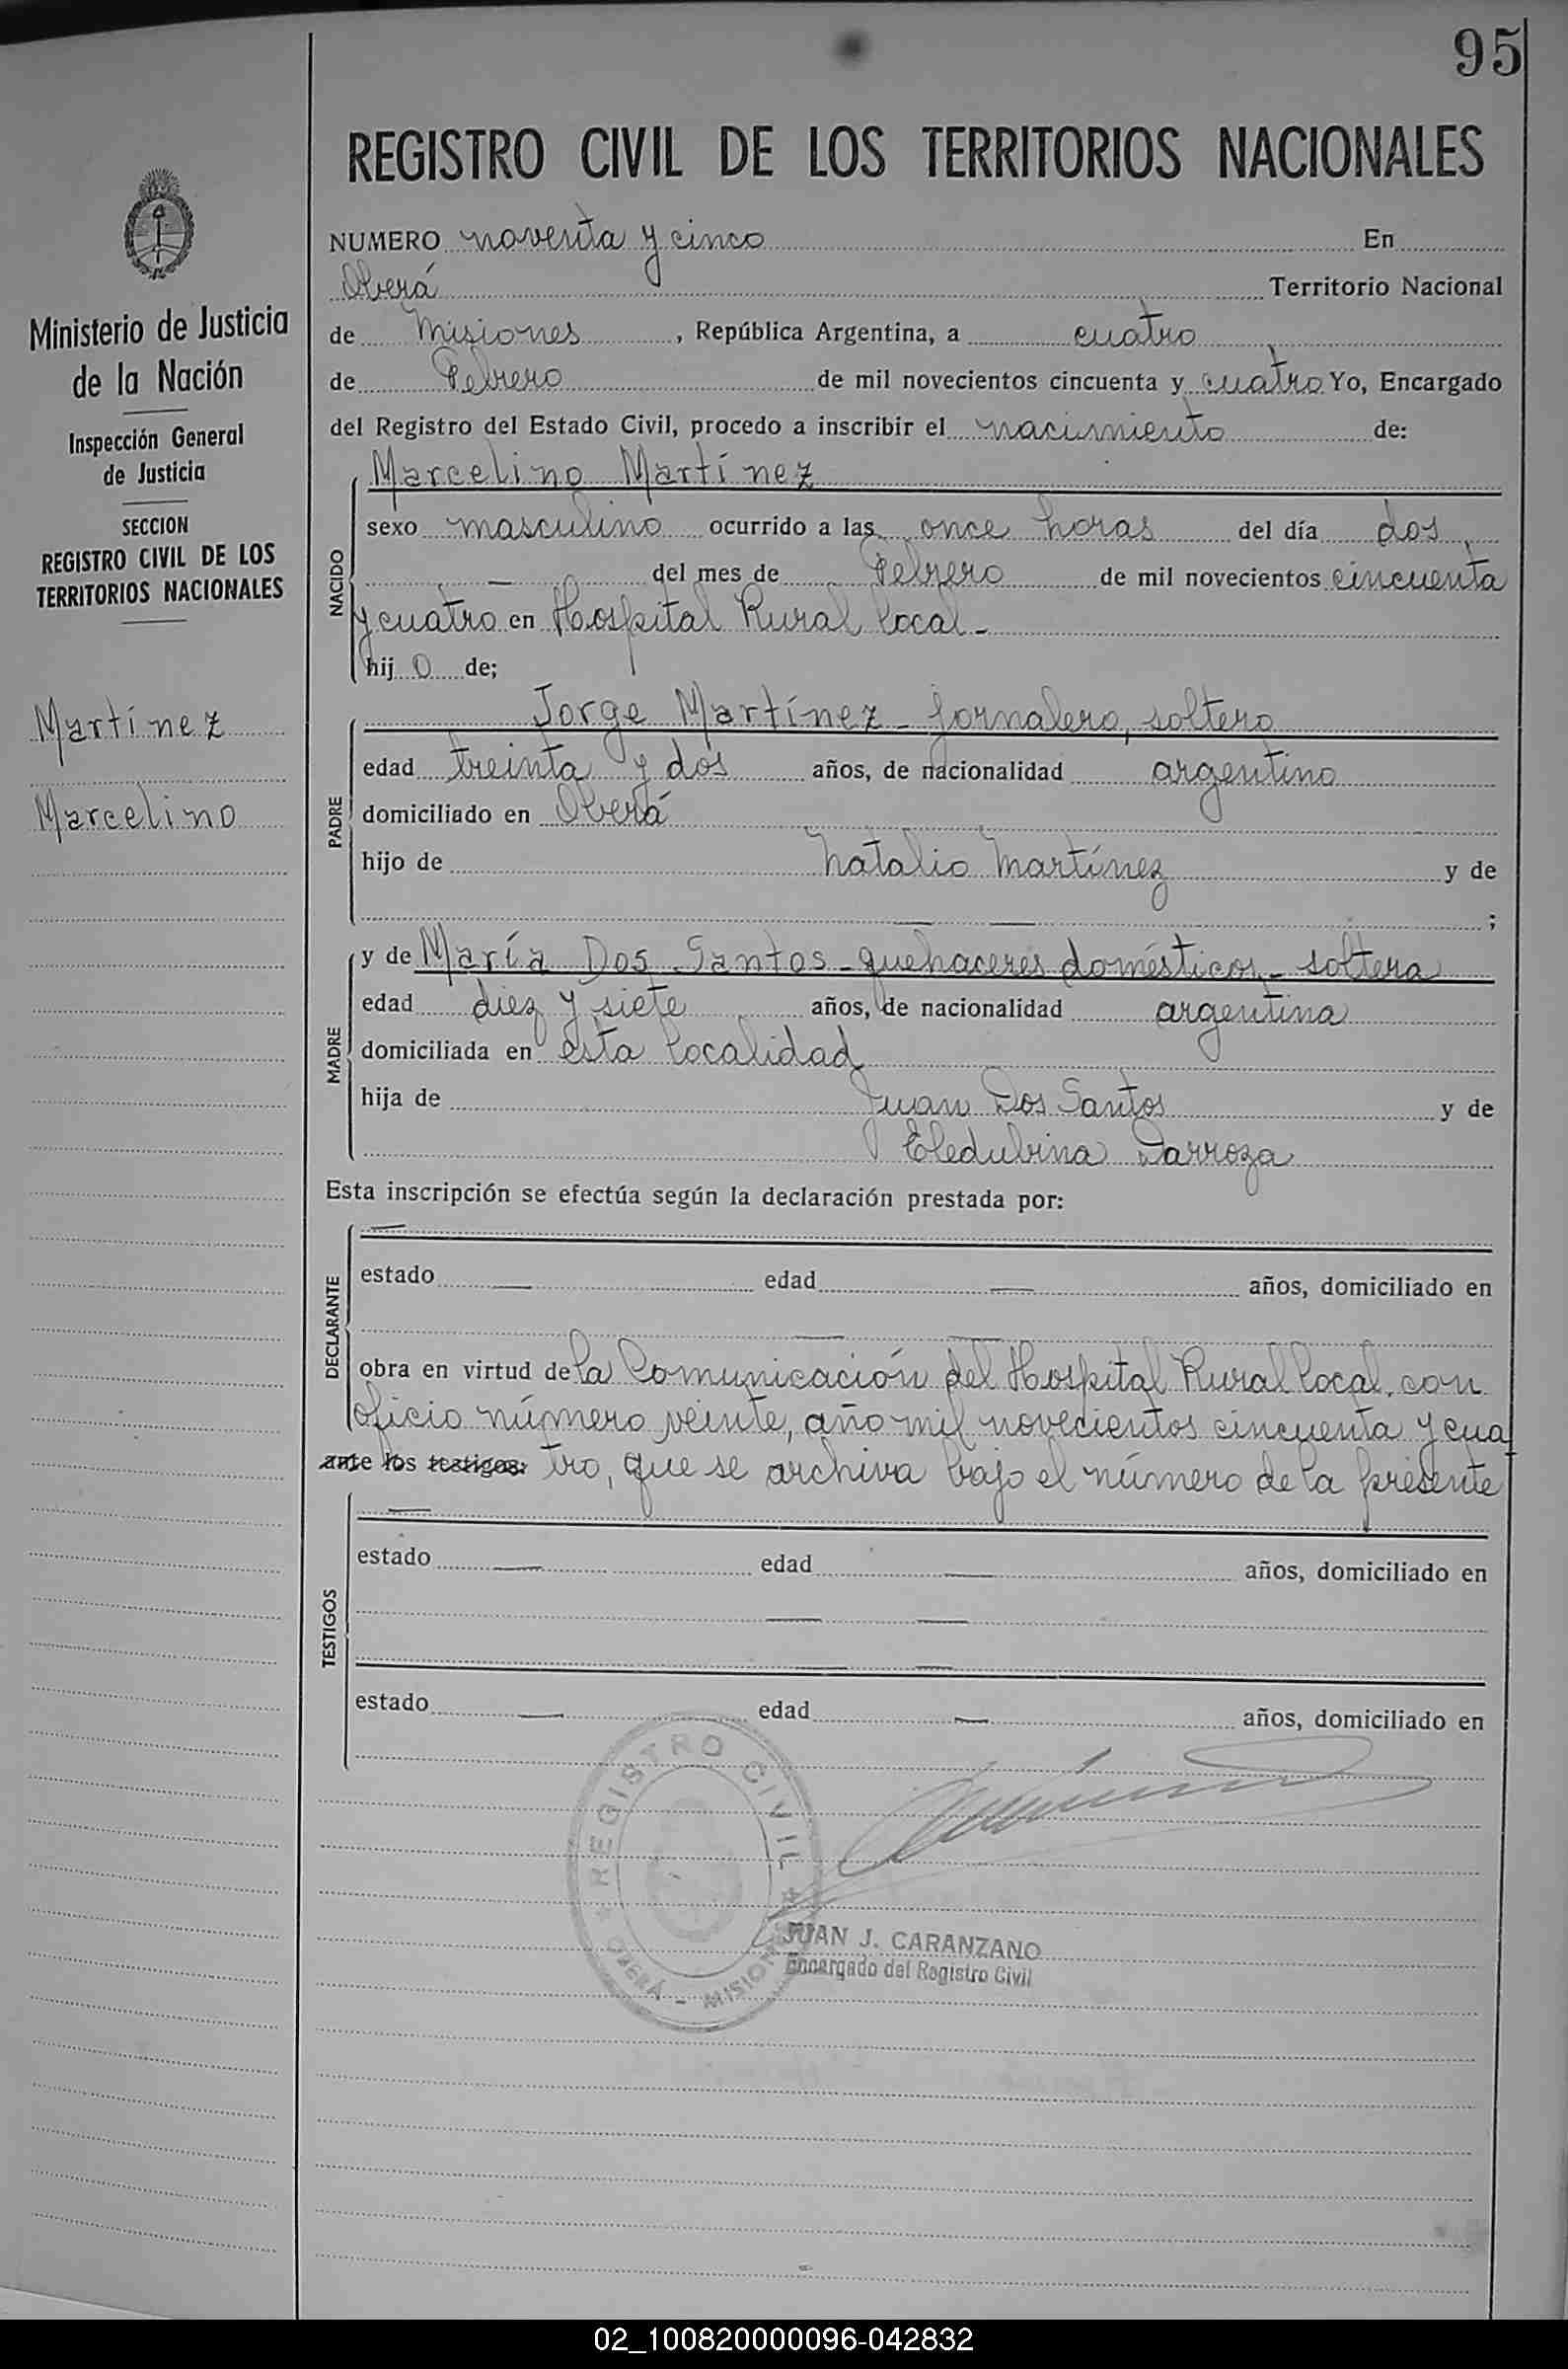 95
REGISTRO CIVIL DE LOS TERRITORIOS NACIONALES
Ministerio de Justicia
de la Nación
Inspección General
de Justicia
SECCION
REGISTRO CIVIL DE LOS
TERRITORIOS NACIONALES
Martínez
Marcelino
NUMERO noventa y cinco En
Oberá Territorio Nacional
de Misiones, República Argentina, a cuatro
de Febrero de mil novecientos cincuenta y cuatro Yo, Encargado
del Registro del Estado Civil, procedo a inscribir el nacimiento de:
NACIDO
Marcelino Martínez
sexo masculino ocurrido a las once horas del día dos
— del mes de Febrero de mil novecientos cincuenta
y cuatro en Hospital Rural local-
hijo de;
PADRE
Jorge Martínez - jornalero, soltero
edad treinta y dos años, de nacionalidad argentino
domiciliado en Oberá
hijo de Natalio Martínez y de
— — ;
MADRE
y de María Dos Santos - quehaceres domésticos - soltera
edad diez y siete años, de nacionalidad argentina
domiciliada en esta localidad
hija de Juan Dos Santos y de
Eledubina Darroza
Esta inscripción se efectúa según la declaración prestada por:
DECLARANTE
—
estado — edad — años, domiciliado en
— —
obra en virtud de la Comunicación del Hospital Rural local, con
oficio número veinte, año mil novecientos cincuenta y cua
ante los testigos: tro, que se archiva bajo el número de la presente
TESTIGOS
—
estado — edad — años, domiciliado en
— —
— —
estado — edad — años, domiciliado en
REGISTRO CIVIL
OBERÁ - MISIONES
JUAN J. CARANZANO
Encargado del Registro Civil
02_100820000096-042832